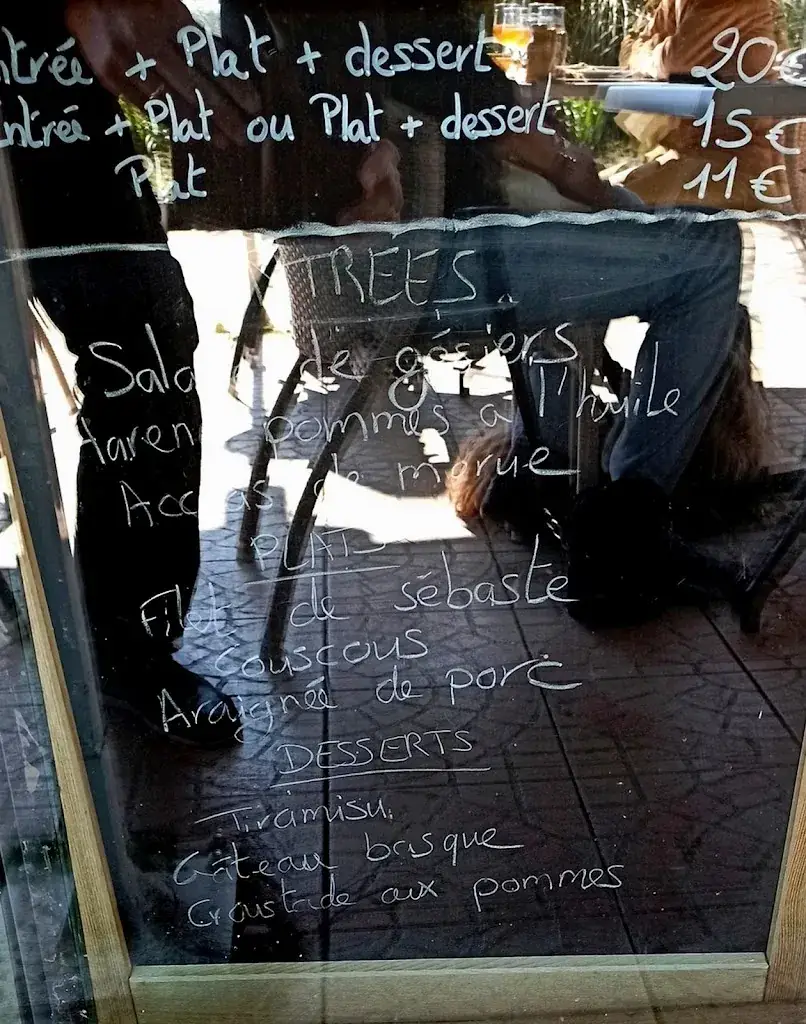 ntrée + Plat + dessert 20€
Entrée + Plat ou Plat + dessert 15€
Plat 11€
TREES
Sala de gésiers
Haren pommes à l'huile
Acc as de morue
PLATS
Filet de sébaste
Couscous
Araignée de porc
DESSERTS
Tiramisu
Gâteau basque
Croustade aux pommes